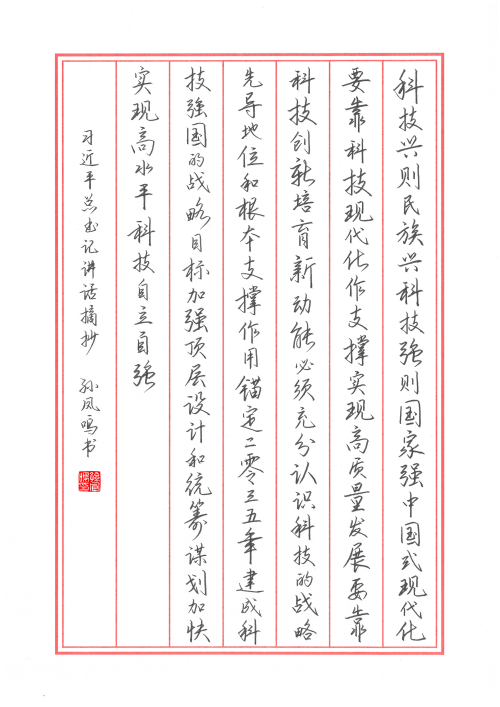 科技兴则民族兴科技强则国家强中国式现代化
要靠科技现代化作支撑实现高质量发展要靠
科技创新培育新动能必须充分认识科技的战略
先导地位和根本支撑作用锚定二零三五年建成科
技强国的战略目标加强顶层设计和统筹谋划加快
实现高水平科技自立自强
习近平总书记讲话摘抄 孙凤鸣书